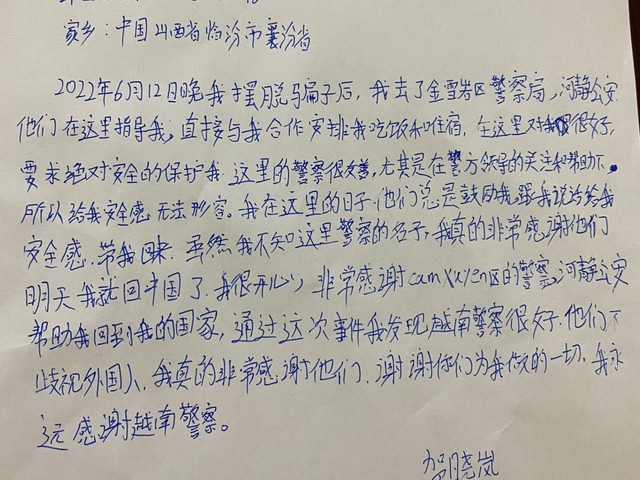 家乡：中国山西省临汾市襄汾省
2022年6月12日晚我摆脱骗子后，我去了金雪岩区警察局，河静公安
他们在这里指导我，直接与我合作安排我吃饭和住宿，在这里对我很好，
要求绝对安全的保护我.这里的警察很友善，尤其是在警方领导的关注和帮助下。
所以给我安全感，无法形容。我在这里的日子，他们总是鼓励我，跟我说话给我
安全感.带我回来.虽然我不知这里警察的名字，我真的非常感谢他们
明天我就回中国了.我很开心，非常感谢camxuyen区的警察，河静公安
帮助我回到我的国家，通过这次事件我发现越南警察很好.他们不
歧视外国人.我真的非常感谢他们.谢谢你们为我做的一切.我永
远感谢越南警察。
贺晓岚